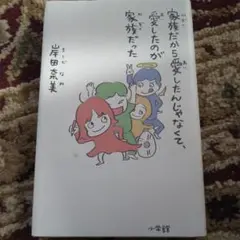 家族だから愛したんじゃなくて、
愛したのが
家族だった
岸田奈美
きしだ なみ
小学館